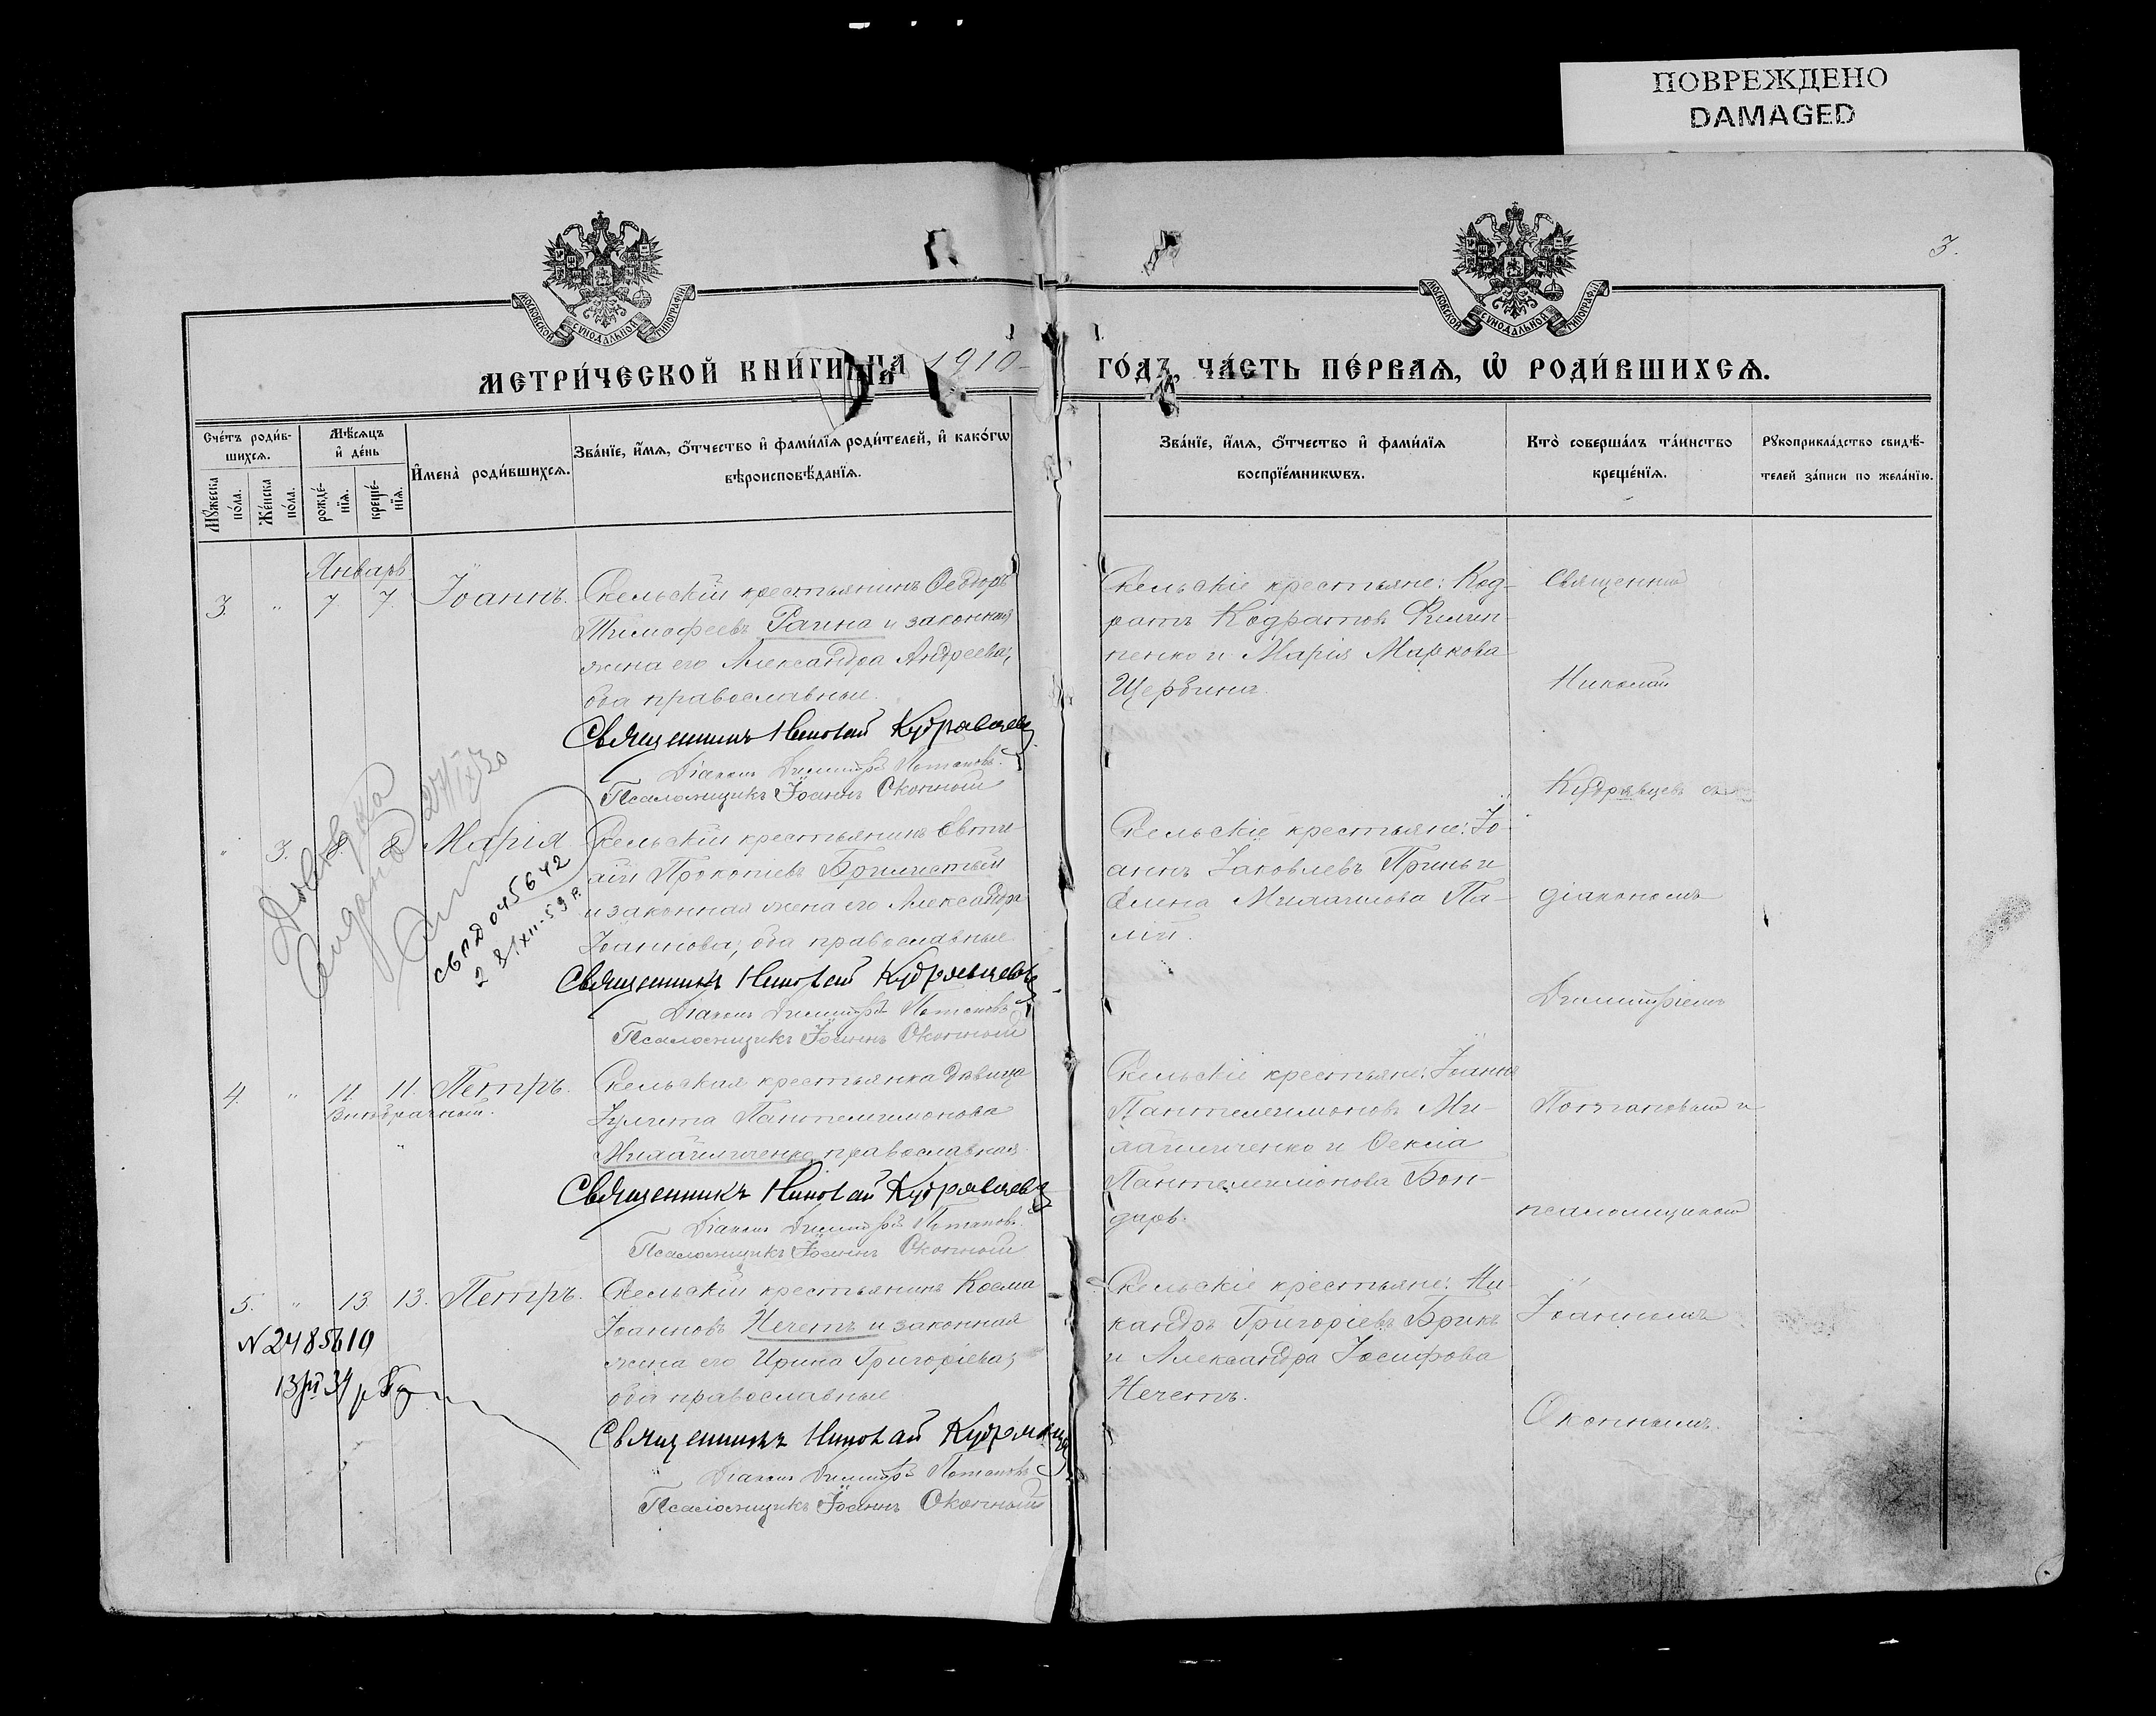 ПОВРЕЖДЕНО
DAMAGED
3.
МОСКОВСКОЙ СѴНОДАЛЬНОЙ ТИПОГРАФІИ
МОСКОВСКОЙ СѴНОДАЛЬНОЙ ТИПОГРАФІИ
МЕТРИ́ЧЕСКОЙ КНИ́ГИ НА 1910 ГО́ДЪ, ЧА́СТЬ ПЕ́РВАѦ, Ѡ҆ РОДИ́ВШИХСѦ.
Сче́тъ роди́в-
шихсѧ.
Мꙋ́жеска по́ла.
Же́нска по́ла.
Мѣ́сѧцъ
и҆ де́нь
рожде́-
нїѧ.
креще́-
нїѧ.
И҆мена̀ роди́вшихсѧ.
Зва́нїе, и҆́мѧ, ѻ҆́тчество и҆ фами́лїѧ роди́телей, и҆ како́гѡ
вѣроисповѣ́данїѧ.
Зва́нїе, и҆́мѧ, ѻ҆́тчество и҆ фами́лїѧ
воспрїе́мникѡвъ.
Кто̀ соверша́лъ та́инство
креще́нїѧ.
Рꙋкоприкла́дство свидѣ́-
телей за́писи по жела́нїю.
Январь
3. " 7. 7. Іоаннъ.
Сельскій крестьянинъ Ѳеодоръ
Тимофеевъ Рагина и законная
жена его Александра Андреева,
оба православные.
Священникъ Николай Кудрявцевъ
Діаконъ Димитрій Потаповъ.
Псаломщикъ Іоаннъ Окопный
Сельскіе крестьяне: Код-
ратъ Кодратовъ Филип-
пенко и Марія Маркова
Щербина.
" 3. 8. 8. Марія
Сельскій крестьянинъ Евти-
хій Прокопіевъ
и законная жена его Александра
Іоаннова, оба православные
Священникъ Николай Кудрявцевъ
Діаконъ Димитрій Потаповъ
Псаломщикъ Іоаннъ Окопный
Сельскіе крестьяне: Іо-
аннъ Іаковлевъ Принь и
Елена Михаилова Па-
лій.
27/IX 30
СВПД 045642
28/XII-59 г.
4. " 11. 11. Петръ.
Внебрачный.
Сельская крестьянка дѣвица
Іулита Пантелеимонова
Михаиличенко, православная
Священникъ Николай Кудрявцевъ
Діаконъ Димитрій Потаповъ.
Псаломщикъ Іоаннъ Окопный
Сельскіе крестьяне: Іоаннъ
Пантелеимоновъ Ми-
хаиличенко и Ѳекла
Пантелеимонова Бон-
дарь.
5. " 13 13. Петръ.
N 2485610
Сельскій крестьянинъ Косма
Іоанновъ Нечетъ и законная
жена его Ирина Григоріева,
оба православные
Священникъ Николай Кудрявцевъ
Діаконъ Димитрій Потаповъ
Псаломщикъ Іоаннъ Окопный
Сельскіе крестьяне: Ни-
кандръ Григоріевъ Брикъ
и Александра Іосифова
Нечетъ.
Священникъ
Николай
Кудрявцевъ съ
діакономъ
Димитріемъ
Потаповымъ и
псаломщикомъ
Іоанномъ
Окопнымъ.